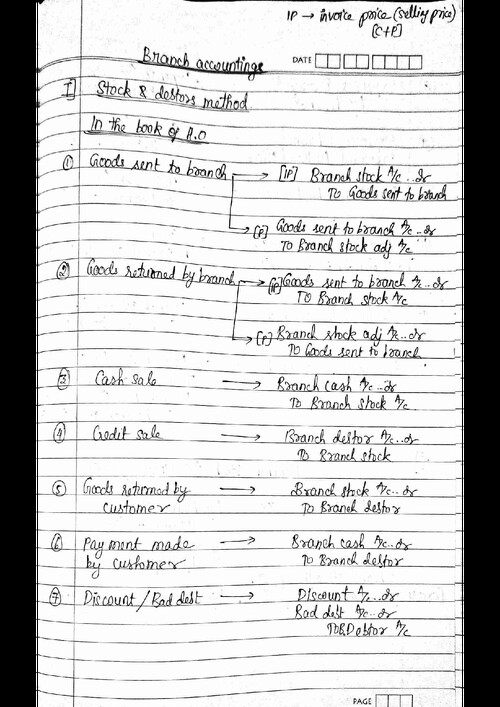 IP → invoice price (selling price)
[C+P]
Branch accountings
DATE
I] Stock & destors method
In the book of H.O
① Goods sent to branch → [IP] Branch stock A/c...dr
To Goods sent to branch
→ [P] Goods sent to branch A/c..dr
To Branch stock adj A/c
② Goods returned by branch → [IP] Goods sent to branch A/c..dr
TO Branch stock A/c
→ [P] Branch stock adj A/c...dr
TO Goods sent to branch
③ Cash sale → Branch cash A/c...dr
To Branch stock A/c
④ Credit sale → Branch destor A/c...dr
To Branch stock
⑤ Goods returned by → Branch stock A/c...dr
customer To Branch destor
⑥ Payment made → Branch cash A/c...dr
by customer To Branch destor
⑦ Discount / Bad dest → Discount A/c...dr
Bad dest A/c...dr
TO B.Debtor A/c
PAGE